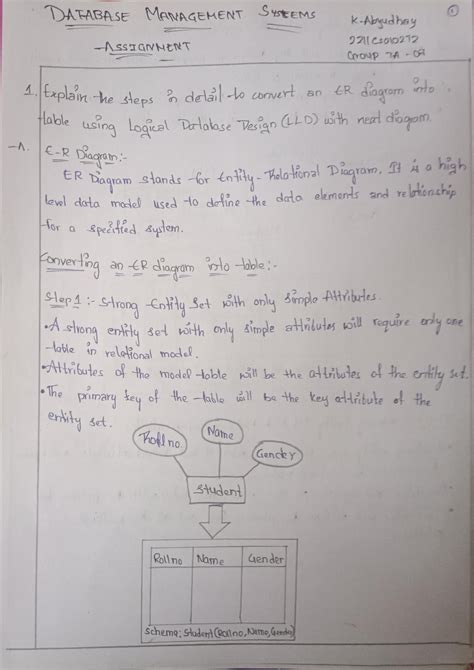 DATABASE MANAGEMENT SYSTEEMS
-ASSIGNMENT
K-Abyudhay
2211CS010272
Group 7A-02
1
1. Explain the steps in detail to convert an ER diagram into
table using Logical Database Design (LLD) with neat diagram.
-A.
E-R Diagram:-
ER Diagram stands for Entity-Relational Diagram. It is a high
level data model used to define the data elements and relationship
for a specified system.
Converting an ER diagram into table:-
Step 1:- Strong Entity Set with only Simple Attributes.
•A strong entity set with only simple attributes will require only one
table in relational model.
•Attributes of the model table will be the attributes of the entity set.
•The primary key of the table will be the key attribute of the
entity set.
Rollno.
Name
Gender
Student
Rollno Name Gender
Schema: Student(Rollno, Name, Gender)